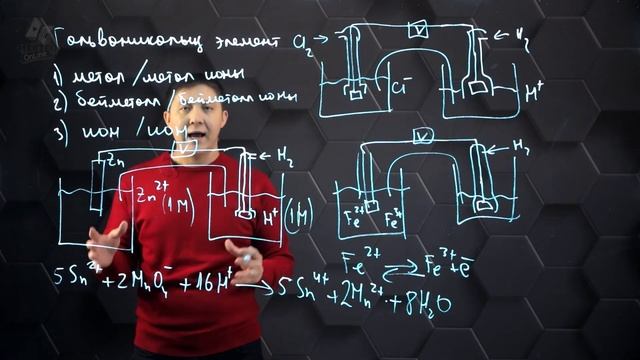 Гальваникалық элемент
1) метал/метал ионы
2) бейметалл/бейметалл ионы
3) ион/ион
Cl₂ V H₂
Cl⁻ H⁺
Zn V H₂
Zn²⁺ (1M) H⁺ (1M)
V H₂
Fe²⁺ Fe³⁺
Fe²⁺ ⇄ Fe³⁺ + e⁻
5Sn²⁺ + 2MnO₄⁻ + 16H⁺ → 5Sn⁴⁺ + 2Mn²⁺ + 8H₂O